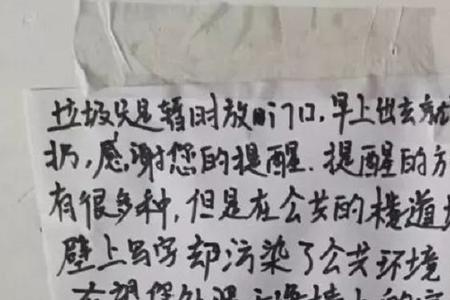 垃圾只是暂时放的门口,早上出去就
扔,感谢您的提醒.提醒的方
有很多种,但是在公共的楼道墙
壁上写字却污染了公共环境
希望您